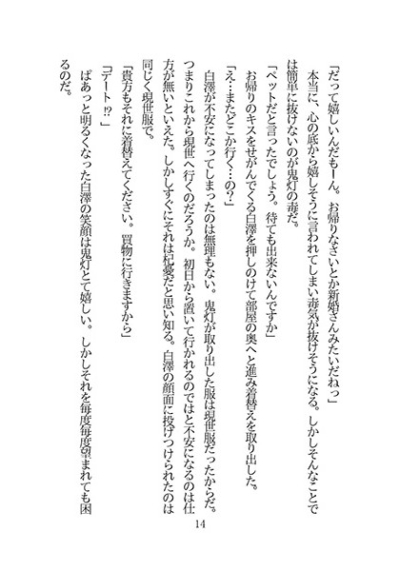 「だって嬉しいんだもーん。お帰りなさいとか新婚さんみたいだねっ」
本当に、心の底から嬉しそうに言われてしまい毒気が抜けそうになる。しかしそんなことで
は簡単に抜けないのが鬼灯の毒だ。
「ペットだと言ったでしょう。待ても出来ないんですか」
お帰りのキスをせがんでくる白澤を押しのけて部屋の奥へと進み着替えを取り出した。
「え…またどこか行く…の？」
白澤が不安になってしまったのは無理もない。鬼灯が取り出した服は現世服だったからだ。
つまりこれから現世へ行くのだろうか。初日から置いて行かれるのではと不安になるのは仕
方が無いといえた。しかしすぐにそれは杞憂だと思い知る。白澤の顔面に投げつけられたのは
同じく現世服で。
「貴方もそれに着替えてください。買物に行きますから」
「デート!?」
ぱあっと明るくなった白澤の笑顔は鬼灯とて嬉しい。しかしそれを毎度毎度望まれても困
るのだ。
14